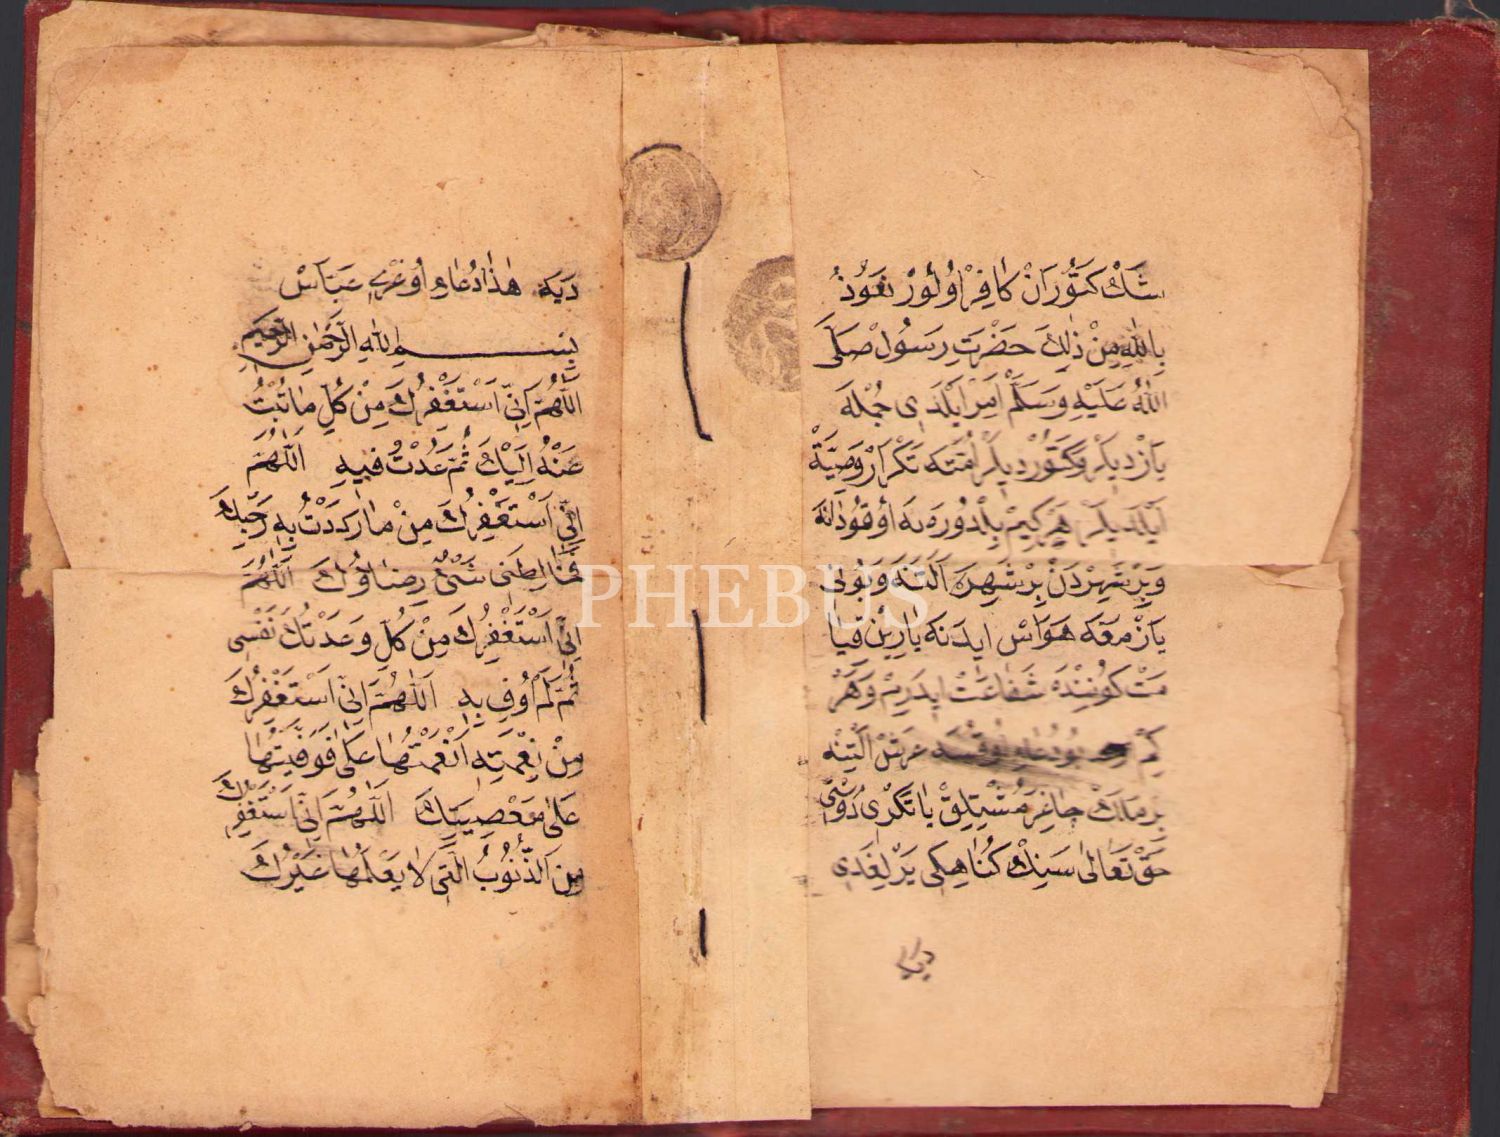 شَكْ كَتُورَانْ كَافِرْ اُولُورْ نَعُوذُ
بِاللهِ مِنْ ذٰلِكَ حَضْرَتِ رَسُولْ صَلَّى
اللهُ عَلَيْهِ وَسَلَّمْ اَمِرْ اَيْلَدِى جُمْلَه
يَازْدِيلَرْ وَكَتُورْدِيلَرْ اُمَّتَه تَكْرَارْ وَصِيَّةْ
اَيْلَدِيلَرْ هَرْ كِيمْ اُوقُودَانَه
وَبِرْ شَهِرْدَنْ بِرْ شَهِرَه اَلَتنَه وَبُونِى
يَازْمَغَه هَوَاسْ ايدَنَه يَارِينْ قِيَا
مَتْ كُونِنْدَه شَفَاعَتْ ايدَرِيمْ وَهَرْ
كِمْ بُو دُعَايِ اُوقُسَه عَرْشْ اَلْتِنْه
بِرْ مَلَكْ جَاغِرَ
حَقْ تَعَالٰى سَنِكْ كُنَاهِكِى يَرْلِغَدِى
دَيَه هٰذَا دُعَاءِ
دَيَه هٰذَا دُعَاءِ اُوغْرِے عَبَّاسْ
بِسْمِ اللهِ الرَّحْمٰنِ الرَّحِيمِ
اَللّٰهُمَّ اِنِّى اَسْتَغْفِرُكَ مِنْ كُلِّ مَا تُبْتُ
عَنْهُ اِلَيْكَ ثُمَّ عُدْتُ فِيهِ اَللّٰهُمَّ
اِنِّى اَسْتَغْفِرُكَ مِنْ مَا اَرَدْتُ بِهِ وَجْهَكَ
رِضَاؤُكَ اَللّٰهُمَّ
اِنِّى اَسْتَغْفِرُكَ مِنْ كُلِّ وَعَدْتُكَ نَفْسِى
ثُمَّ لَمْ اُوفِ بِهِ اَللّٰهُمَّ اِنِّى اَسْتَغْفِرُكَ
مِنْ نِعْمَتِهِ اَنْعَمْتَهَا عَلَىَّ فَوَفَيْتُهَا
عَلٰى مَعْصِيَتِكَ اَللّٰهُمَّ اِنِّى اَسْتَغْفِرُكَ
مِنَ الذُّنُوبُ الَّتِى لَا يَعْلَمُهَا غَيْرُكَ
PHEBUS